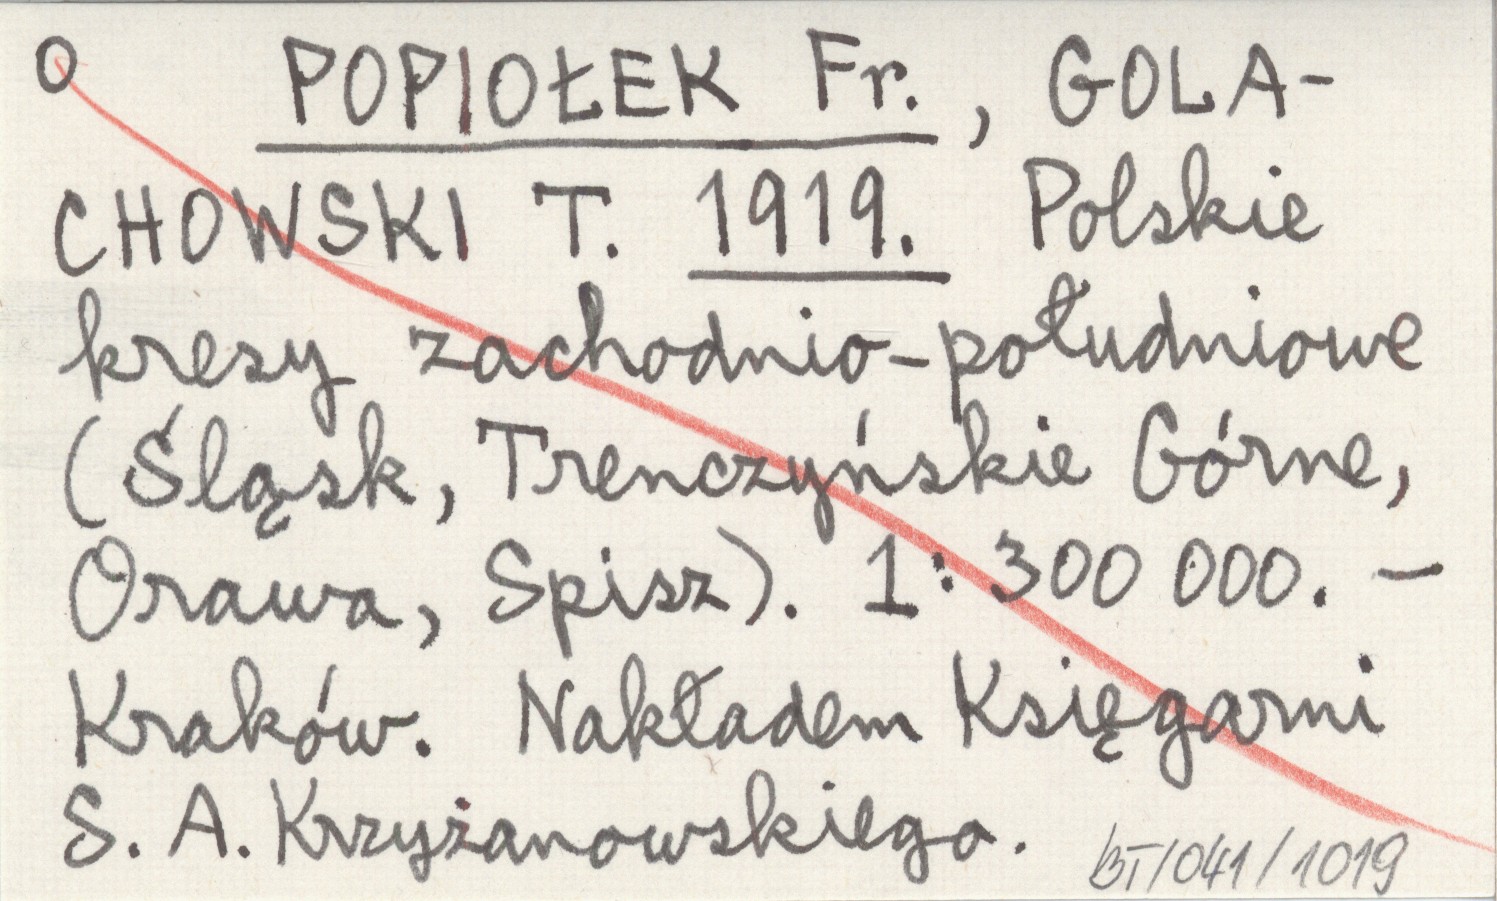 O POPIOŁEK Fr., GOLA-
CHOWSKI T. 1919. Polskie
kresy zachodnio-południowe
(Śląsk, Trenczyńskie Górne,
Orawa, Spisz). 1:300 000. —
Kraków. Nakładem Księgarni
S. A. Krzyżanowskiego.
BT/041/1019